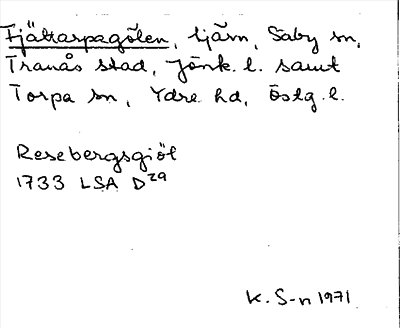 Fjättarpagölen, tjärn, Säby sn,
Tranås stad, Jönk. l. samt
Torpa sn, Ydre hd, Östg. l.
Resebergsgiöl
1733 LSA D29
K. S-n 1971